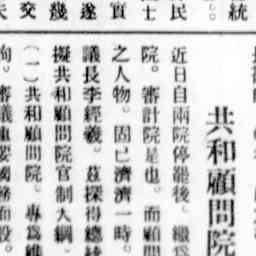 統
民
士
實
遂
幾
交
共和顧問院
近日自兩院停罷後。繼為
院。審計院是也。而顧問
之人物。固已濟濟一時。
議長李經羲。茲探得總統
擬共和顧問院官制大綱。
(一)共和顧問院。專為
審議重要國務而設。